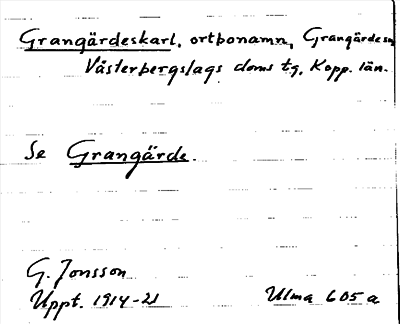 Grangärdeskarl, ortbonamn, Grangärde sn
Västerbergslags doms tg, Kopp. län.
Se Grangärde.
G. Jonsson
Uppt. 1914-21 Ulma 605 a